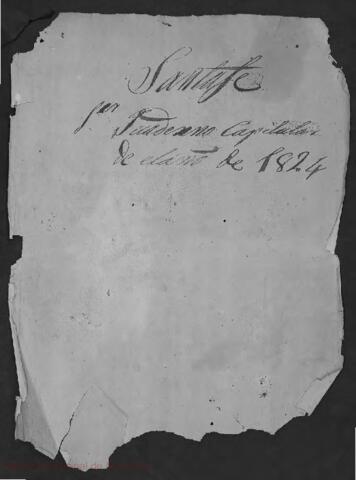 Santafe
Quaderno Capitular
de el año de 1824